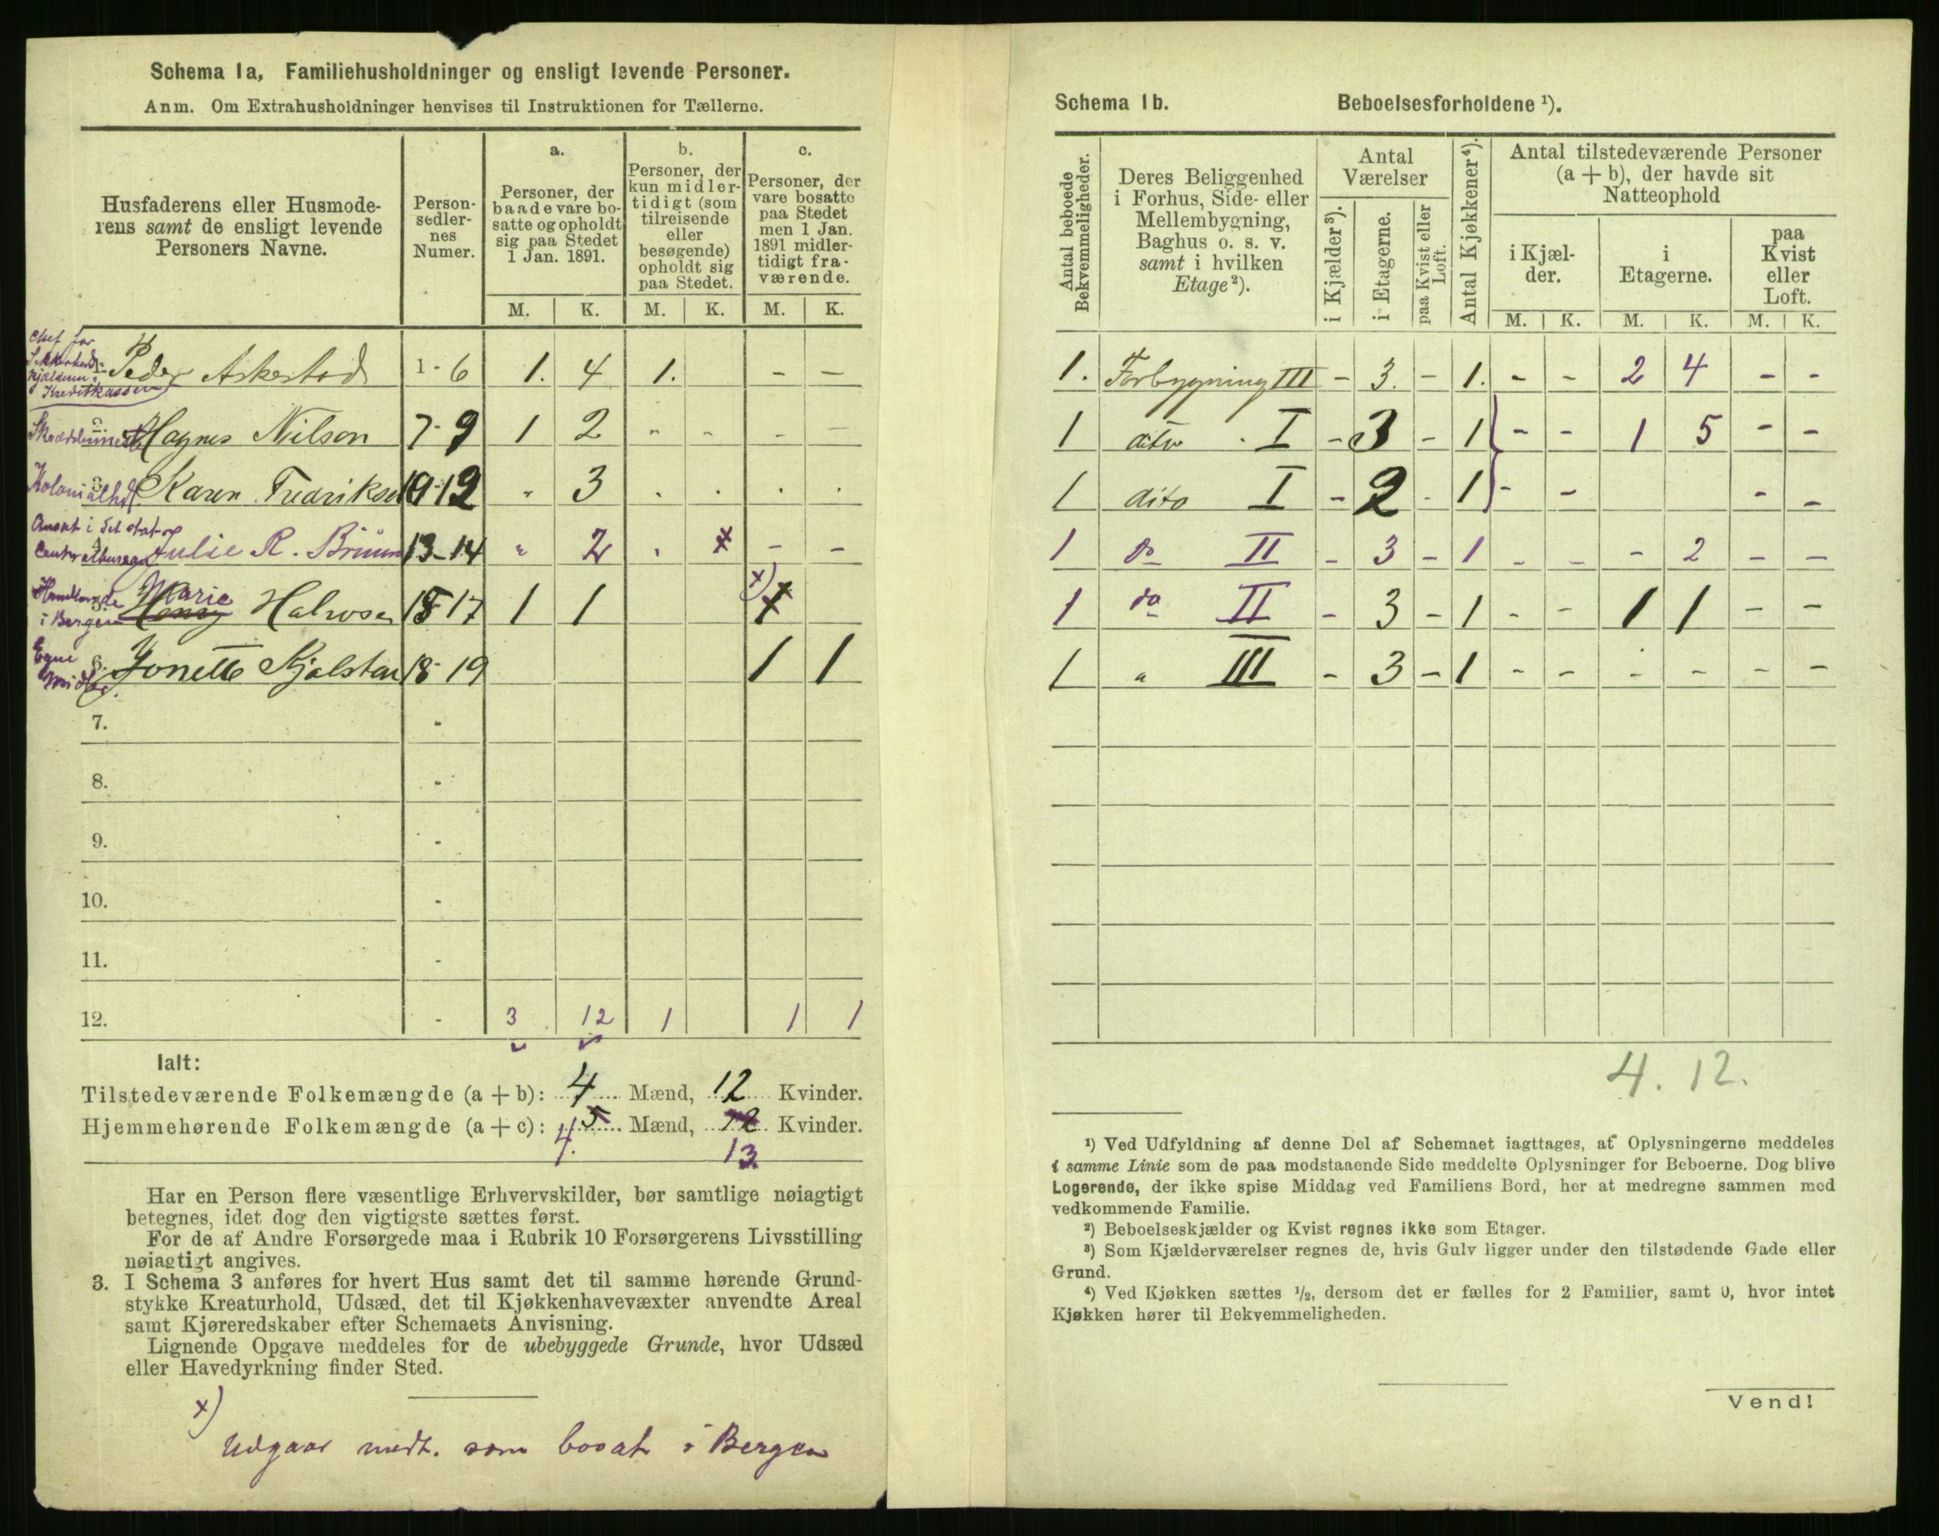 Schema 1a, Familiehusholdninger og ensligt levende Personer.
Anm. Om Extrahusholdninger henvises til Instruktionen for Tællerne.
Husfaderens eller Husmoderens samt de ensligt levende Personers Navne.
Personsedlernes Numer.
a. Personer, der baade vare bosatte og opholdt sig paa Stedet 1 Jan. 1891.
b. Personer, der kun midlertidigt (som tilreisende eller besøgende) opholdt sig paa Stedet.
c. Personer, der vare bosatte paa Stedet men 1 Jan. 1891 midlertidigt fraværende.
M. K. M. K. M. K.
Chef for
Kreditkassen
Peder Askestad 1 - 6 1. 4 1. - -
Hagnes Nilson 7 - 9 1 2 - - - -
Karen Fredriksen 10-12 " 3 . . . .
Ansat i det stat.
Julie R. Bruun 13-14 " 2 . - -
i Bergen Marie Halvosen 15-17 1 1 x)
Egne
Midler. 6. Jonette Kjølstad 18-19 1 1
7. -
8. -
9. -
10. -
11. -
12. - 3 12 1 1 1
Ialt:
Tilstedeværende Folkemængde (a + b): 4 Mænd, 12 Kvinder.
Hjemmehørende Folkemængde (a + c): 5 Mænd, 12 Kvinder.
4. 13
Har en Person flere væsentlige Erhvervskilder, bør samtlige nøiagtigt
betegnes, idet dog den vigtigste sættes først.
For de af Andre Forsørgede maa i Rubrik 10 Forsørgerens Livsstilling
nøiagtigt angives.
3. I Schema 3 anføres for hvert Hus samt det til samme hørende Grund-
stykke Kreaturhold, Udsæd, det til Kjøkkenhavevæxter anvendte Areal
samt Kjøreredskaber efter Schemaets Anvisning.
Lignende Opgave meddeles for de ubebyggede Grunde, hvor Udsæd
eller Havedyrkning finder Sted.
x)
Udgaar medt. som bosat i Bergen
Schema 1b. Beboelsesforholdene ¹).
Antal beboede Bekvemmeligheder.
Deres Beliggenhed i Forhus, Side- eller Mellembygning, Baghus o. s. v. samt i hvilken Etage ²).
Antal Værelser
i Kjælder ³).
i Etagerne.
paa Kvist eller Loft.
Antal Kjøkkener ⁴).
Antal tilstedeværende Personer (a + b), der havde sit Natteophold
i Kjælder.
i Etagerne.
paa Kvist eller Loft.
M. K. M. K. M. K.
1. Forbygning III - 3. - 1. - - 2 4 - -
1 dito I - 3 - 1 - - 1 5 - -
1 dito I - 2 - 1 - - - -
1 do II - 3 - 1 - - - 2 - -
1 do II - 3 - 1 - - 1 1 - -
1 " III - 3 - 1 - - - - - -
4. 12.
¹) Ved Udfyldning af denne Del af Schemaet iagttages, at Oplysningerne meddeles
i samme Linie som de paa modstaaende Side meddelte Oplysninger for Beboerne. Dog blive
Logerende, der ikke spise Middag ved Familiens Bord, her at medregne sammen med
vedkommende Familie.
²) Beboelseskjælder og Kvist regnes ikke som Etager.
³) Som Kjælderværelser regnes de, hvis Gulv ligger under den tilstødende Gade eller
Grund.
⁴) Ved Kjøkken sættes ½, dersom det er fælles for 2 Familier, samt 0, hvor intet
Kjøkken hører til Bekvemmeligheden.
Vend!